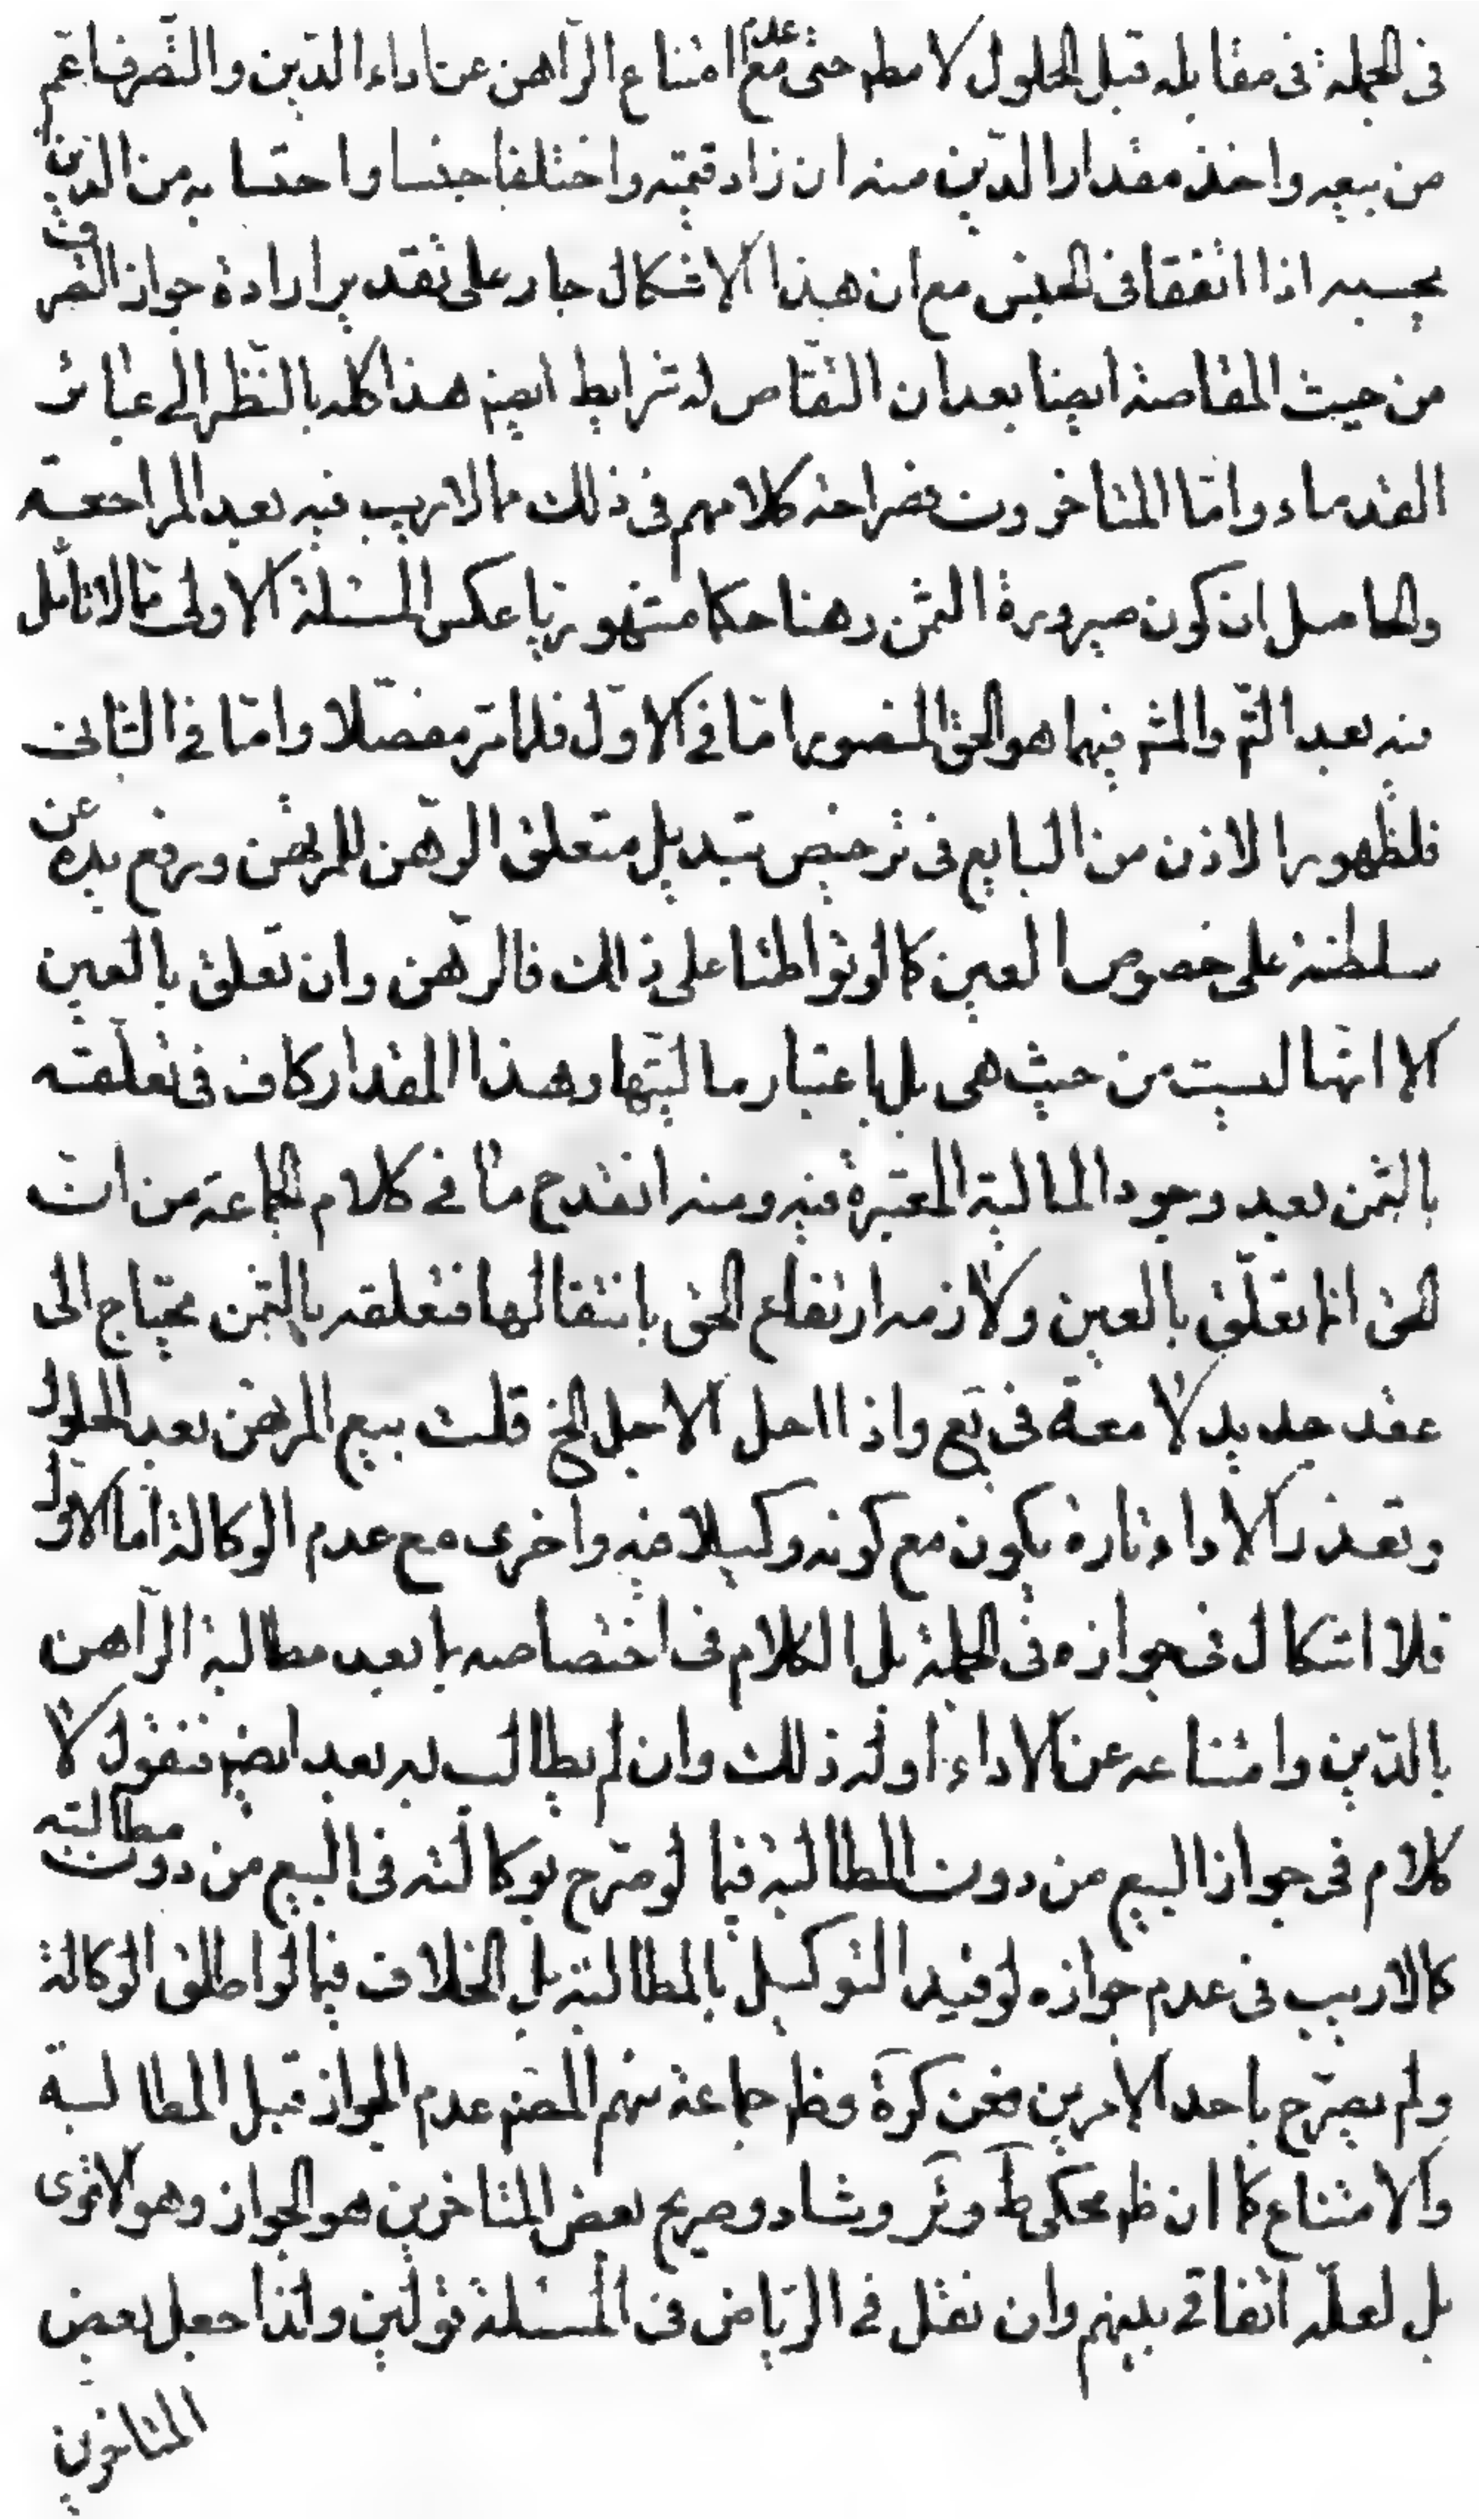 فى الجملة فى مقابله قبل الحلول لا مطم حتى مع عدم امتناع الرّاهن عن اداء الدّين والتّصرف اعمّ
من بيعه واخذ مقدار الدّين منه ان زاد قيمته واختلفا جنسا واحتسابه من الدين
بحسبه اذا اتفقا فى الجنس مع ان هذا الاشكال جار على تقدير ارادة جواز التصرف
من حيث المقاصة ايضا بعد ان التقاص له شرايط ايضم هذا كله بالنّظر الى عبائر
القدماء وامّا المتاخرون فصراحة كلامهم فى ذلك مما لا ريب فيه بعد المراجعة
والحاصل ان كون صيرورة الثمن رهنا حكما مشهوريّا عكس المسئلة الاولى ممّا لا تامّل
فيه بعد التّم والمثم فيهما هو الحق المنصور امّا فى الاوّل فلما مرّ مفصّلا وامّا فى الثانى
فلظهور الاذن من البايع فى ترخيص تبديل متعلق الرّهن للمرتهن ورفع يده عن
سلطنة على خصوص العين كما لو تواطئا على ذلك فالرّهن وان تعلق بالعين
الا انّها ليست من حيث هى بل باعتبار ماليّتها وهذا المقدار كاف فى تعلّقه
بالثمن بعد وجود المالية المعتبرة فيه ومنه انقدح ما فى كلام الجماعة من ان
الحق انما تعلّق بالعين ولازمه ارتفاع الحق بانتقالها فتعلقه بالثمن يحتاج الى
عقد جديد لا معة فى يَع واذا احل الاجل الخ قلت بيع المرتهن بعد الحلول
وتعذر الاداء تارة يكون مع كونه وكيلا فيه واخرى مع عدم الوكالة امّا الاول
فلا اشكال فى جوازه فى الجملة بل الكلام فى اختصاصه بما بعد مطالبة الرّاهن
بالدّين وامتناعه عن الاداء او له ذلك وان لم يطالب به بعد ايضم فنقول لا
كلام فى جواز البيع من دون المطالبة فيما لو صرّح بوكالته فى البيع من دون مطالبته
كما لا ريب فى عدم جوازه لو قيد التوكيل بالمطالبة بل الخلاف فيما لو اطلق الوكالة
ولم يصرّح باحد الامرين فعن كرة وظم جماعة منهم المصنم عدم الجواز قبل المطالبة
والامتناع كما ان ظم محكى ط وئر وشاد وصريح بعض المتاخرين هو الجواز وهو الاقوى
بل لعلّه اتّفاقى بينهم وان نقل فى الرّياض فى المسئلة قولين ولذا جعل بعض
المتاخرين